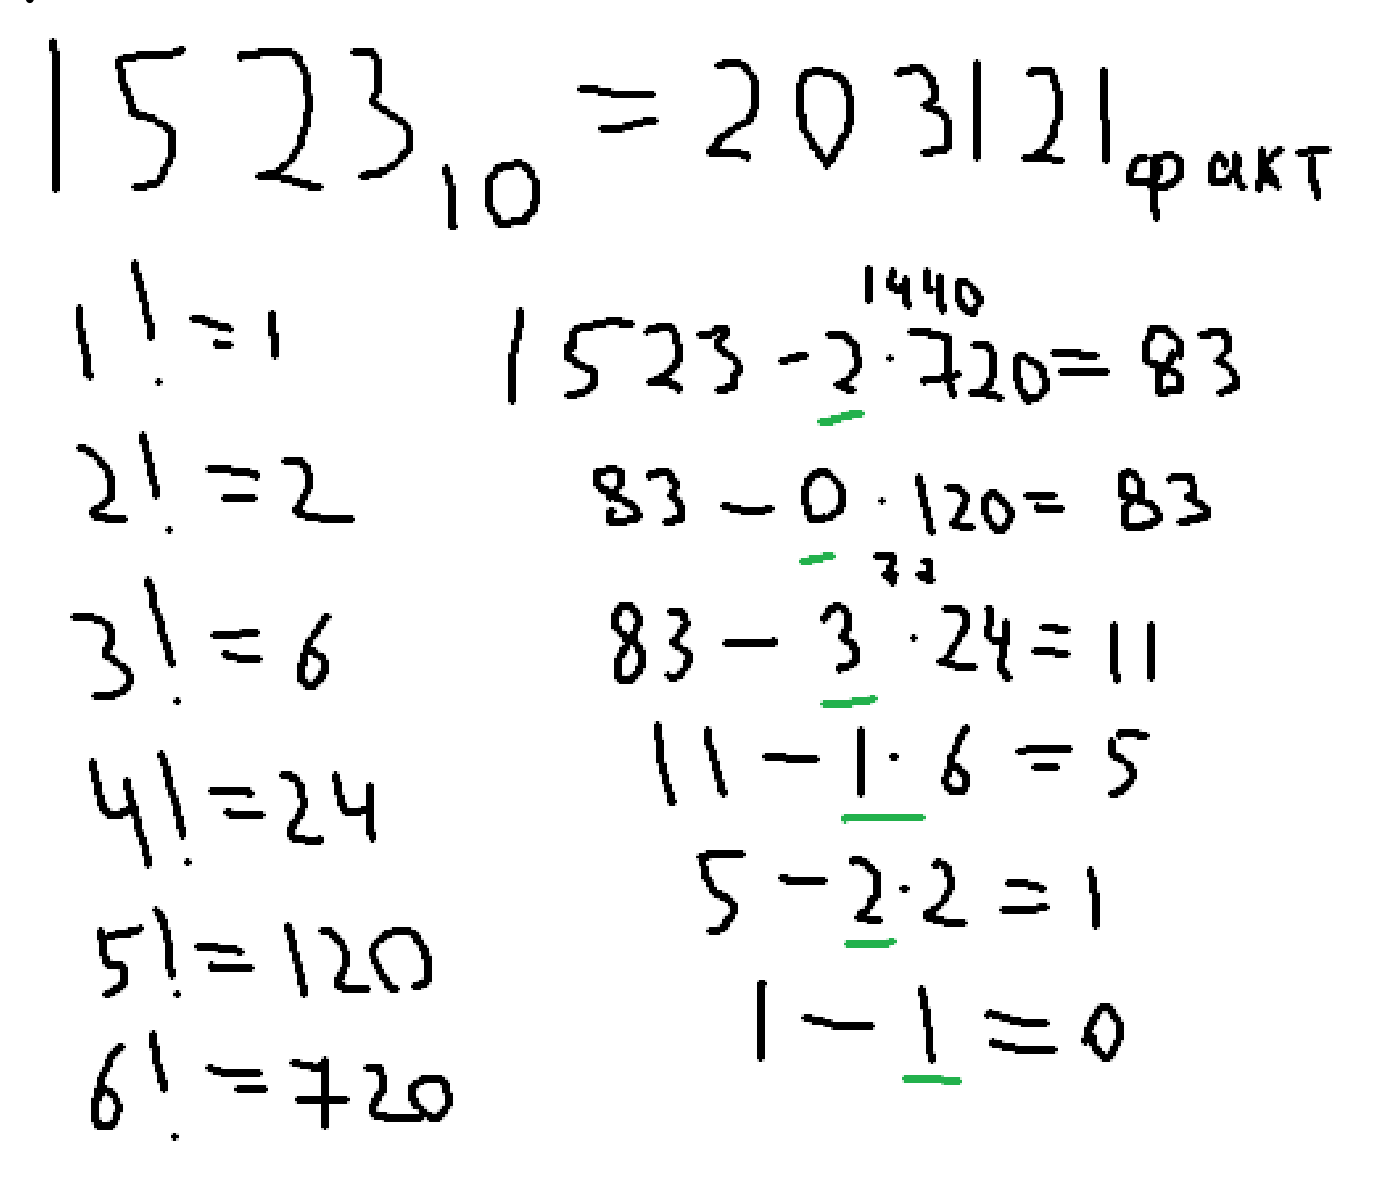 1523₁₀ = 203121факт
1! = 1
2! = 2
3! = 6
4! = 24
5! = 120
6! = 720
1440
1523 - 2 · 720 = 83
83 - 0 · 120 = 83
72
83 - 3 · 24 = 11
11 - 1 · 6 = 5
5 - 2 · 2 = 1
1 - 1 = 0